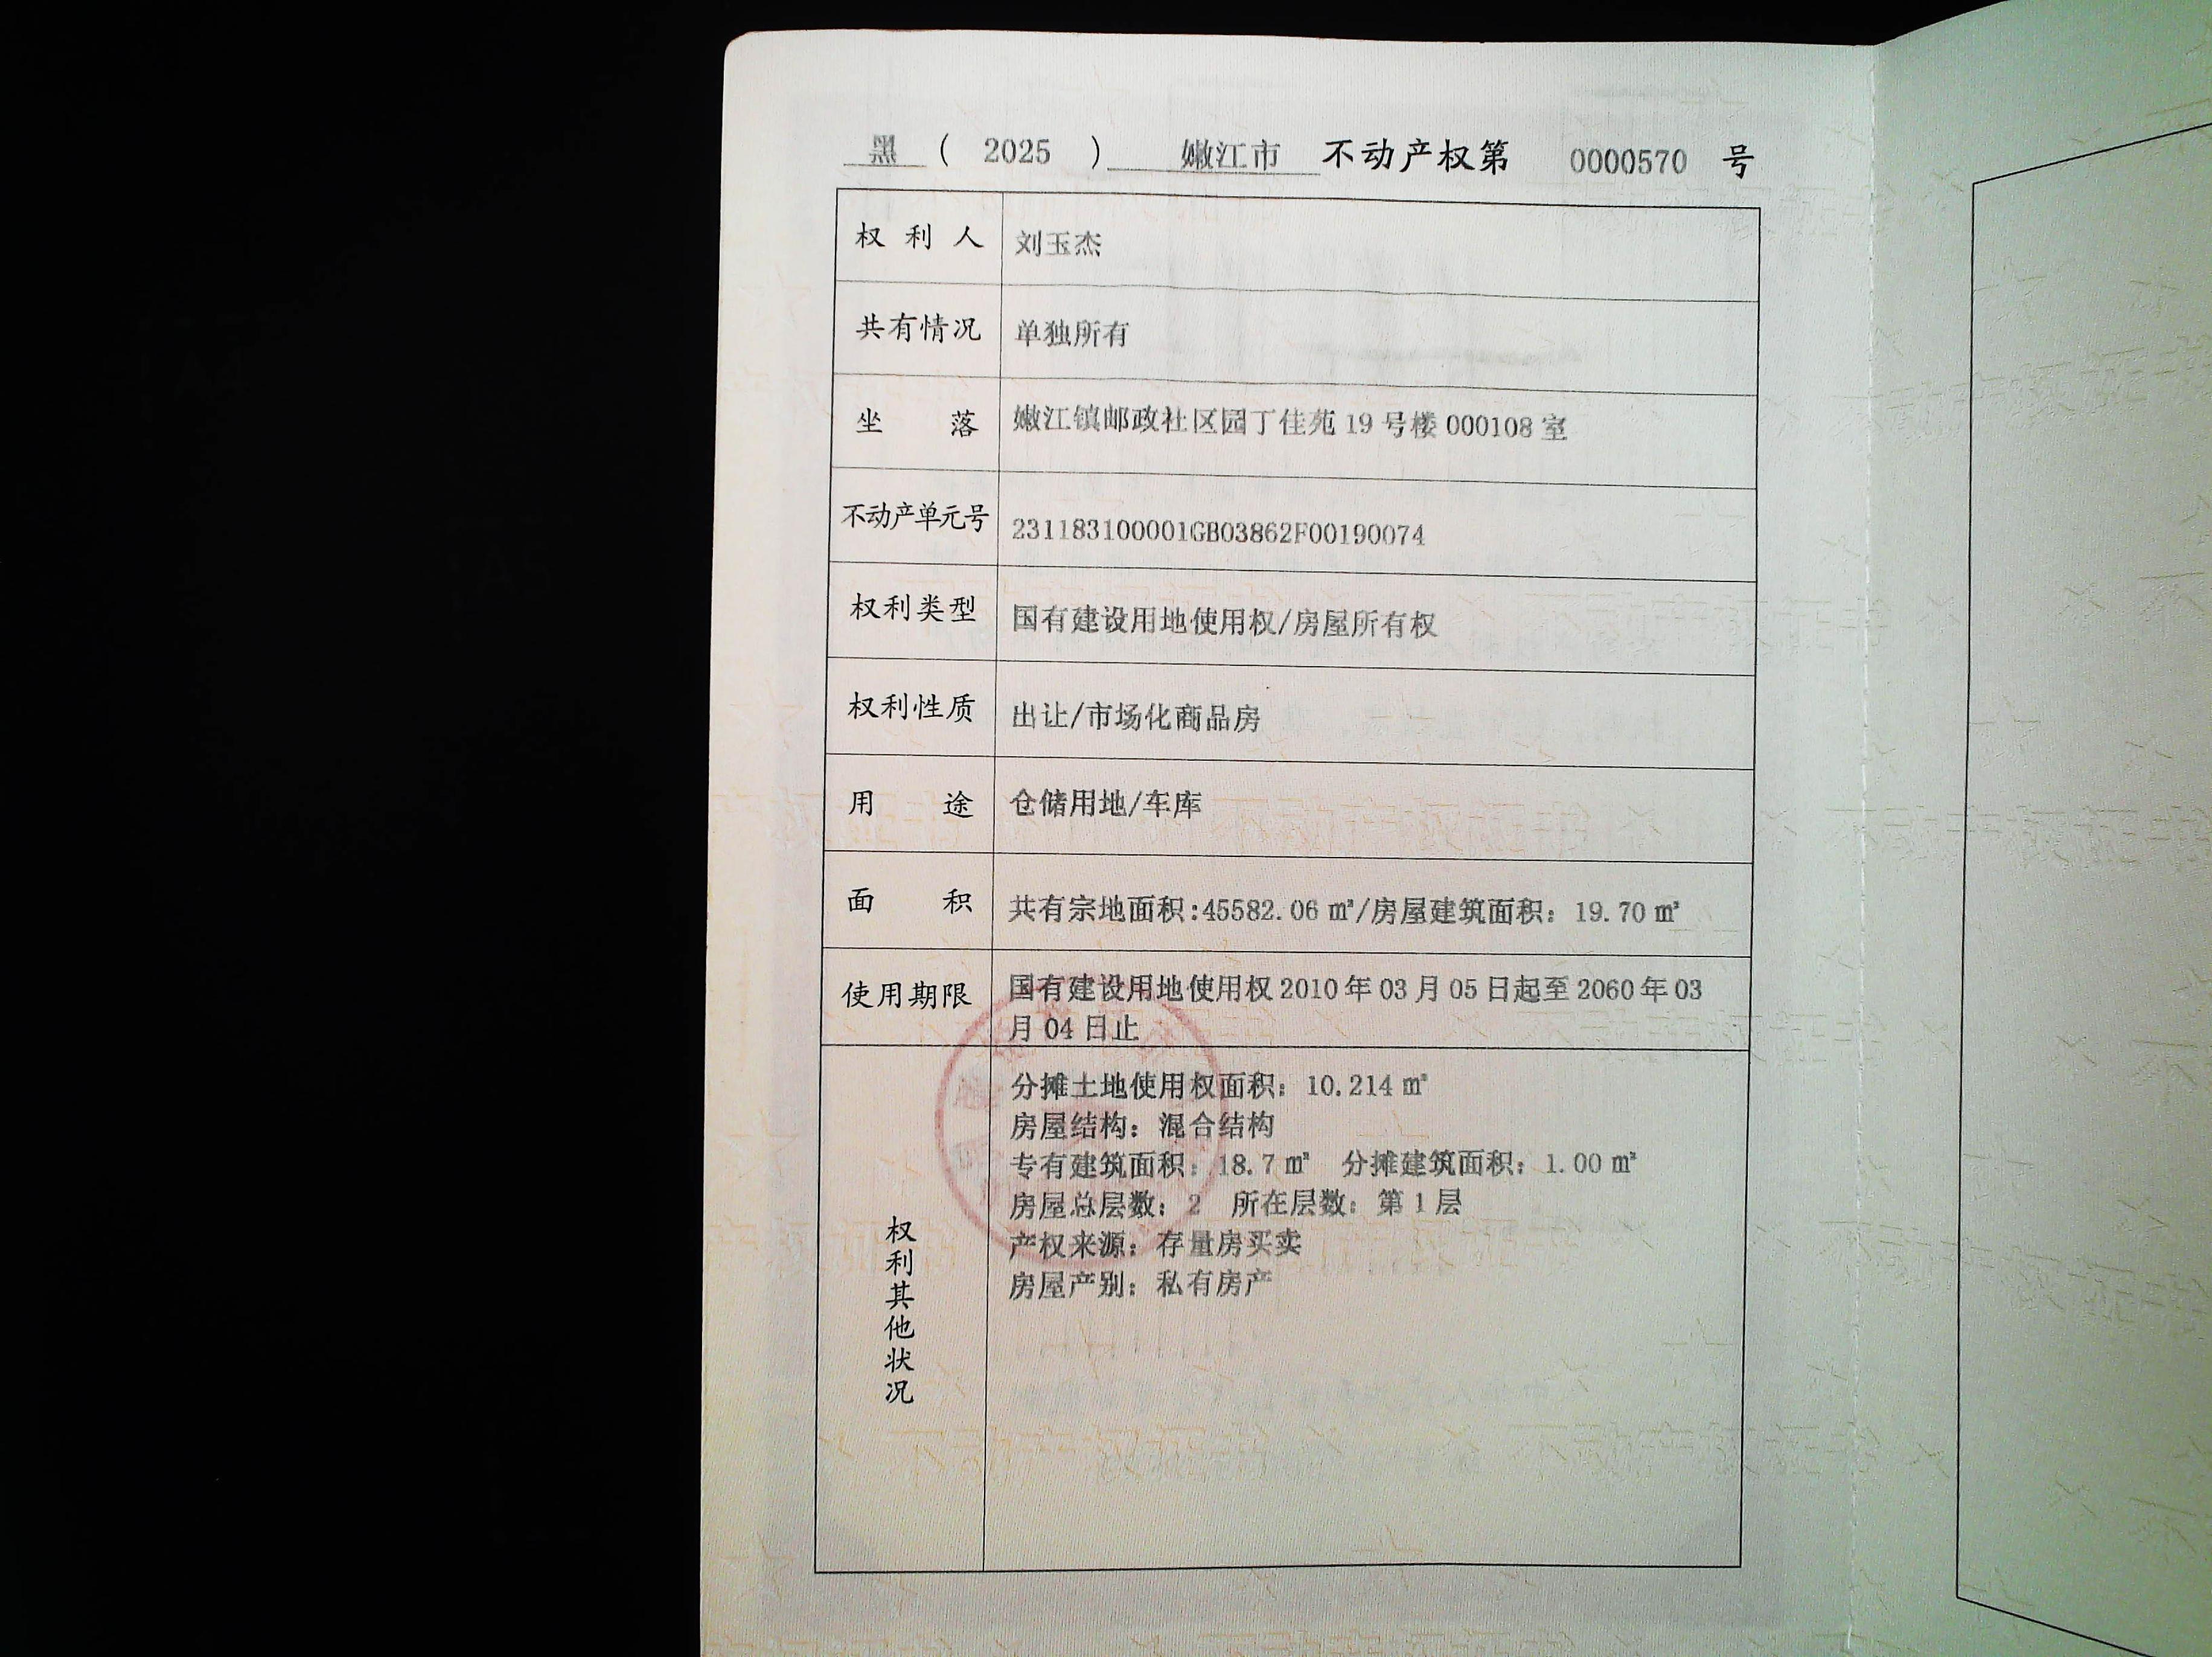 黑 ( 2025 ) 嫩江市 不动产权第 0000570 号
权利人 刘玉杰
共有情况 单独所有
坐落 嫩江镇邮政社区园丁佳苑 19 号楼 000108 室
不动产单元号 231183100001GB03862F00190074
权利类型 国有建设用地使用权/房屋所有权
权利性质 出让/市场化商品房
用途 仓储用地/车库
面积 共有宗地面积:45582.06 ㎡/房屋建筑面积：19.70 ㎡
使用期限 国有建设用地使用权 2010 年 03 月 05 日起至 2060 年 03
月 04 日止
权利其他状况
分摊土地使用权面积：10.214 ㎡
房屋结构：混合结构
专有建筑面积：18.7 ㎡ 分摊建筑面积：1.00 ㎡
房屋总层数：2 所在层数：第 1 层
产权来源：存量房买卖
房屋产别：私有房产